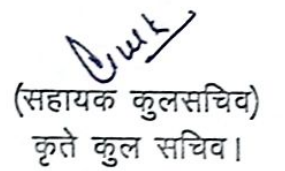 (सहायक कुलसचिव)
कृते कुल सचिव।